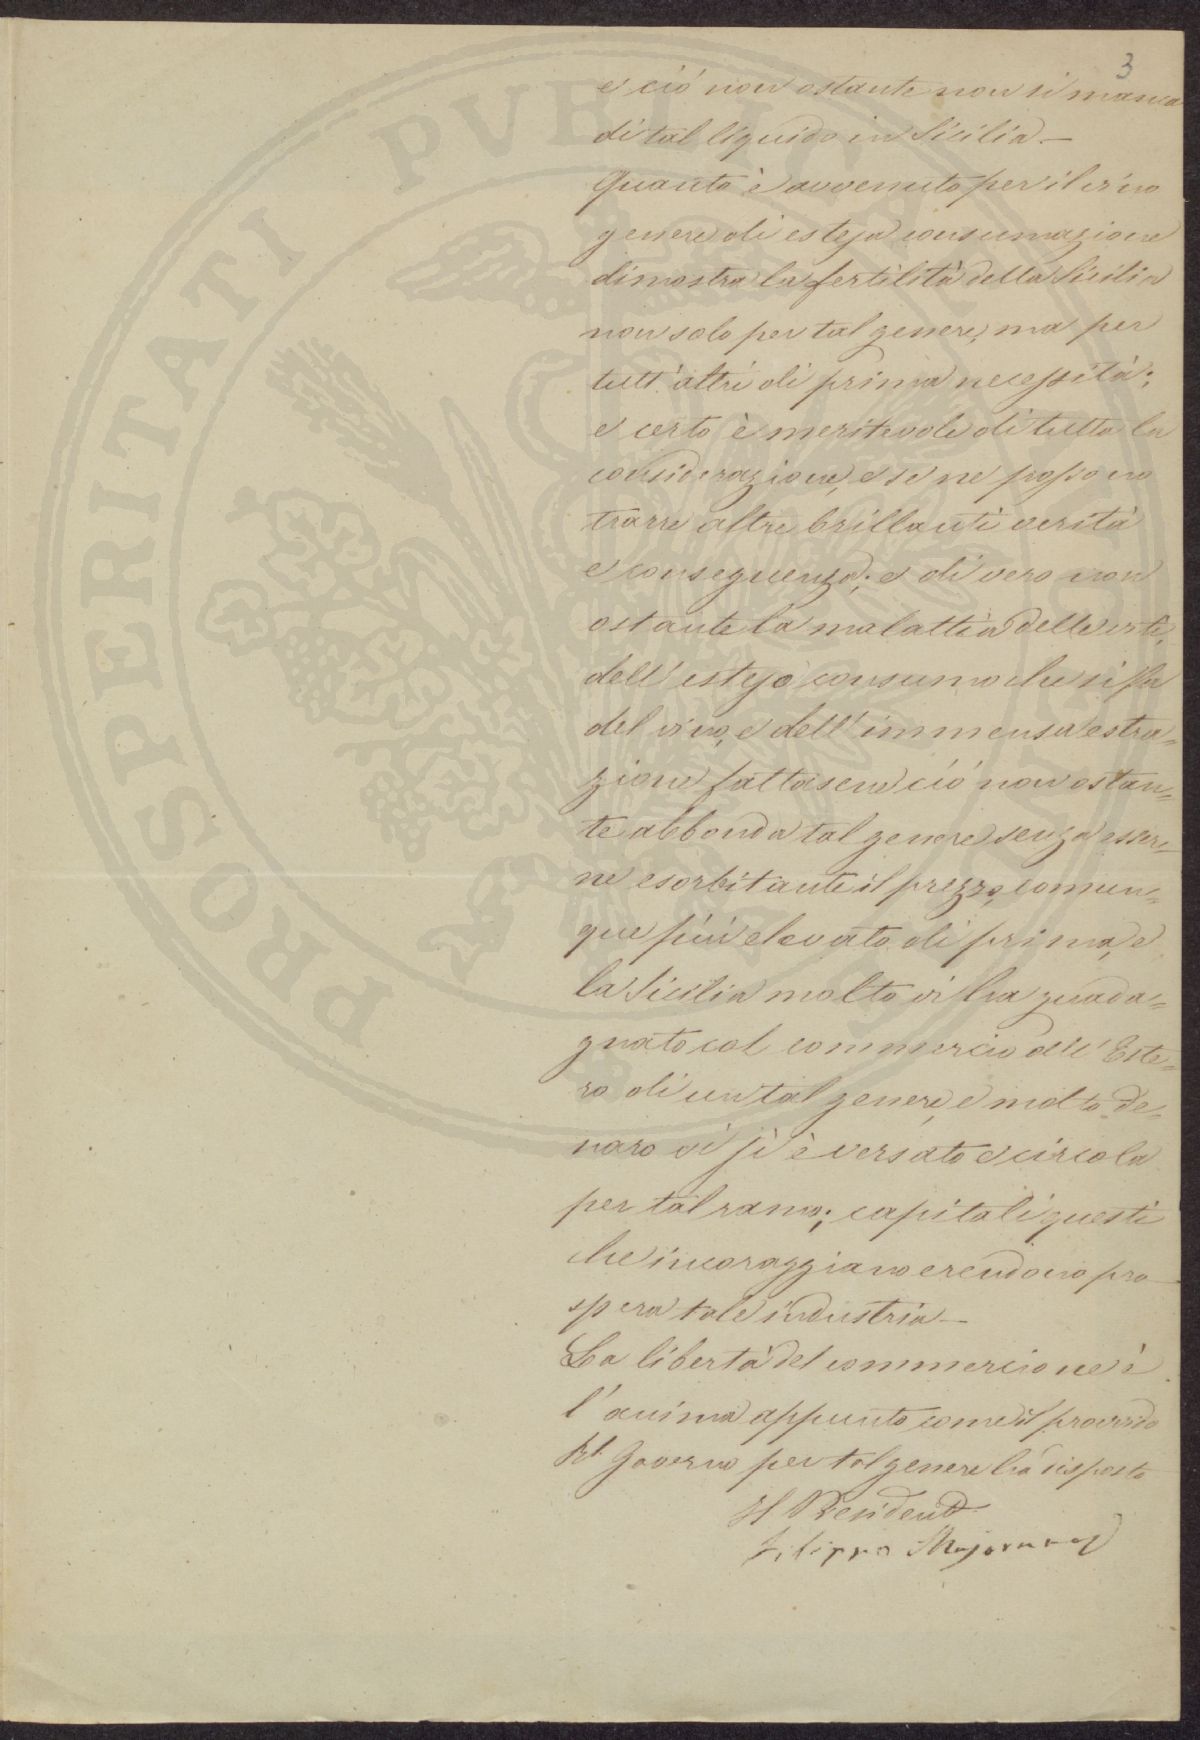 3
e ciò non ostante non si manca
di tal liquido in Sicilia.—
Quanto è avvenuto per il vino
genere di estesa consumazione
dimostra la fertilità della Sicilia
non solo per tal genere, ma per
tutt'altri di prima necessità;
e certo è meritevole di tutta la
considerazione, e se ne possono
trarre altre brillanti verità
e conseguenza; e di vero non
ostante la malattia delle viti,
dell'esteso consumo che si fa
del vino, e dell'immensa estra=
zione fattasene ciò non ostan=
te abbonda tal genere senza esser=
ne esorbitante il prezzo, comun=
que più elevato di prima, e
la Sicilia molto vi ha guada=
gnato col commercio dell'Este=
ro di un tal genere, e molto de=
naro vi si è versato e circola
per tal ramo; capitali questi
che incoraggiano e rendono pro
spera tale industria—
La libertà del commercio ne è
l'anima appunto come il provvido
Rl Governo per tal genere ha disposto
Il Presidente
Filippo Majorana
PROSPERITATI PVBLICAE